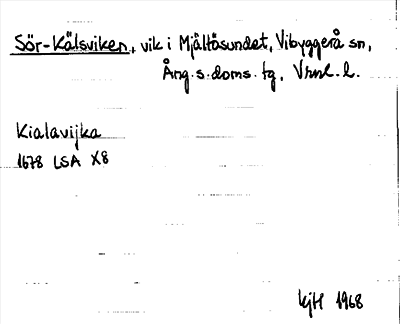 Sör-Kälsviken, vik i Mjältösundet, Vibyggerå sn,
Ång. s. doms. tg, Vnrl. l.
Kialavijka
1678 LSA X8
kjH 1968